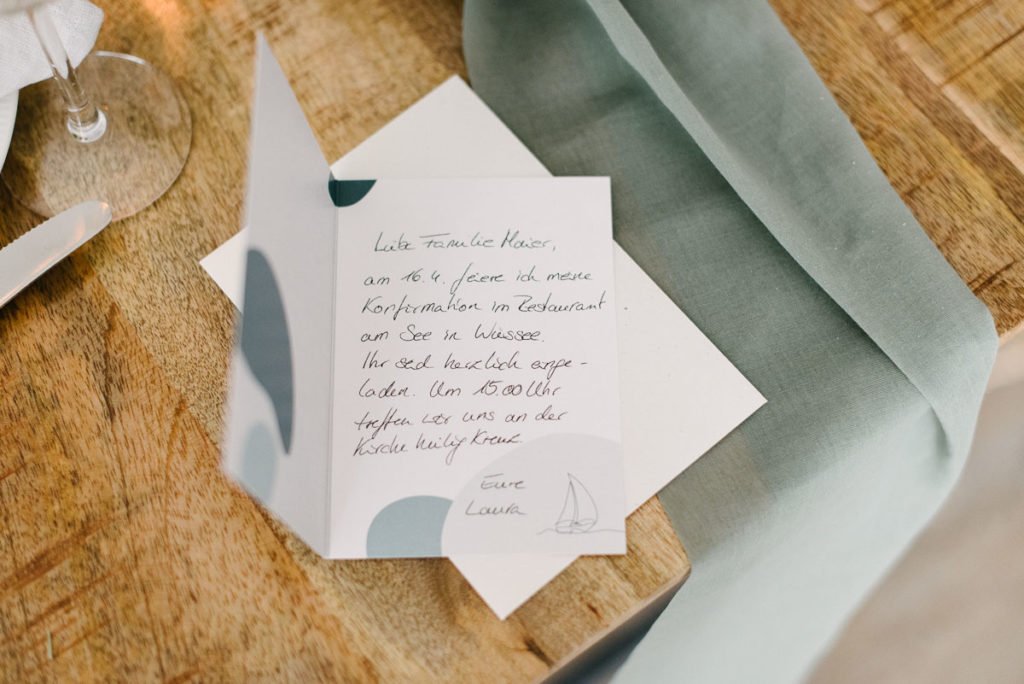 Liebe Familie Maier,
am 16.4. feiere ich meine
Konfirmation im Restaurant
am See in Wiessee.
Ihr seid herzlich einge-
laden. Um 15.00 Uhr
treffen wir uns an der
Kirche heilig Kreuz
Eure
Laura